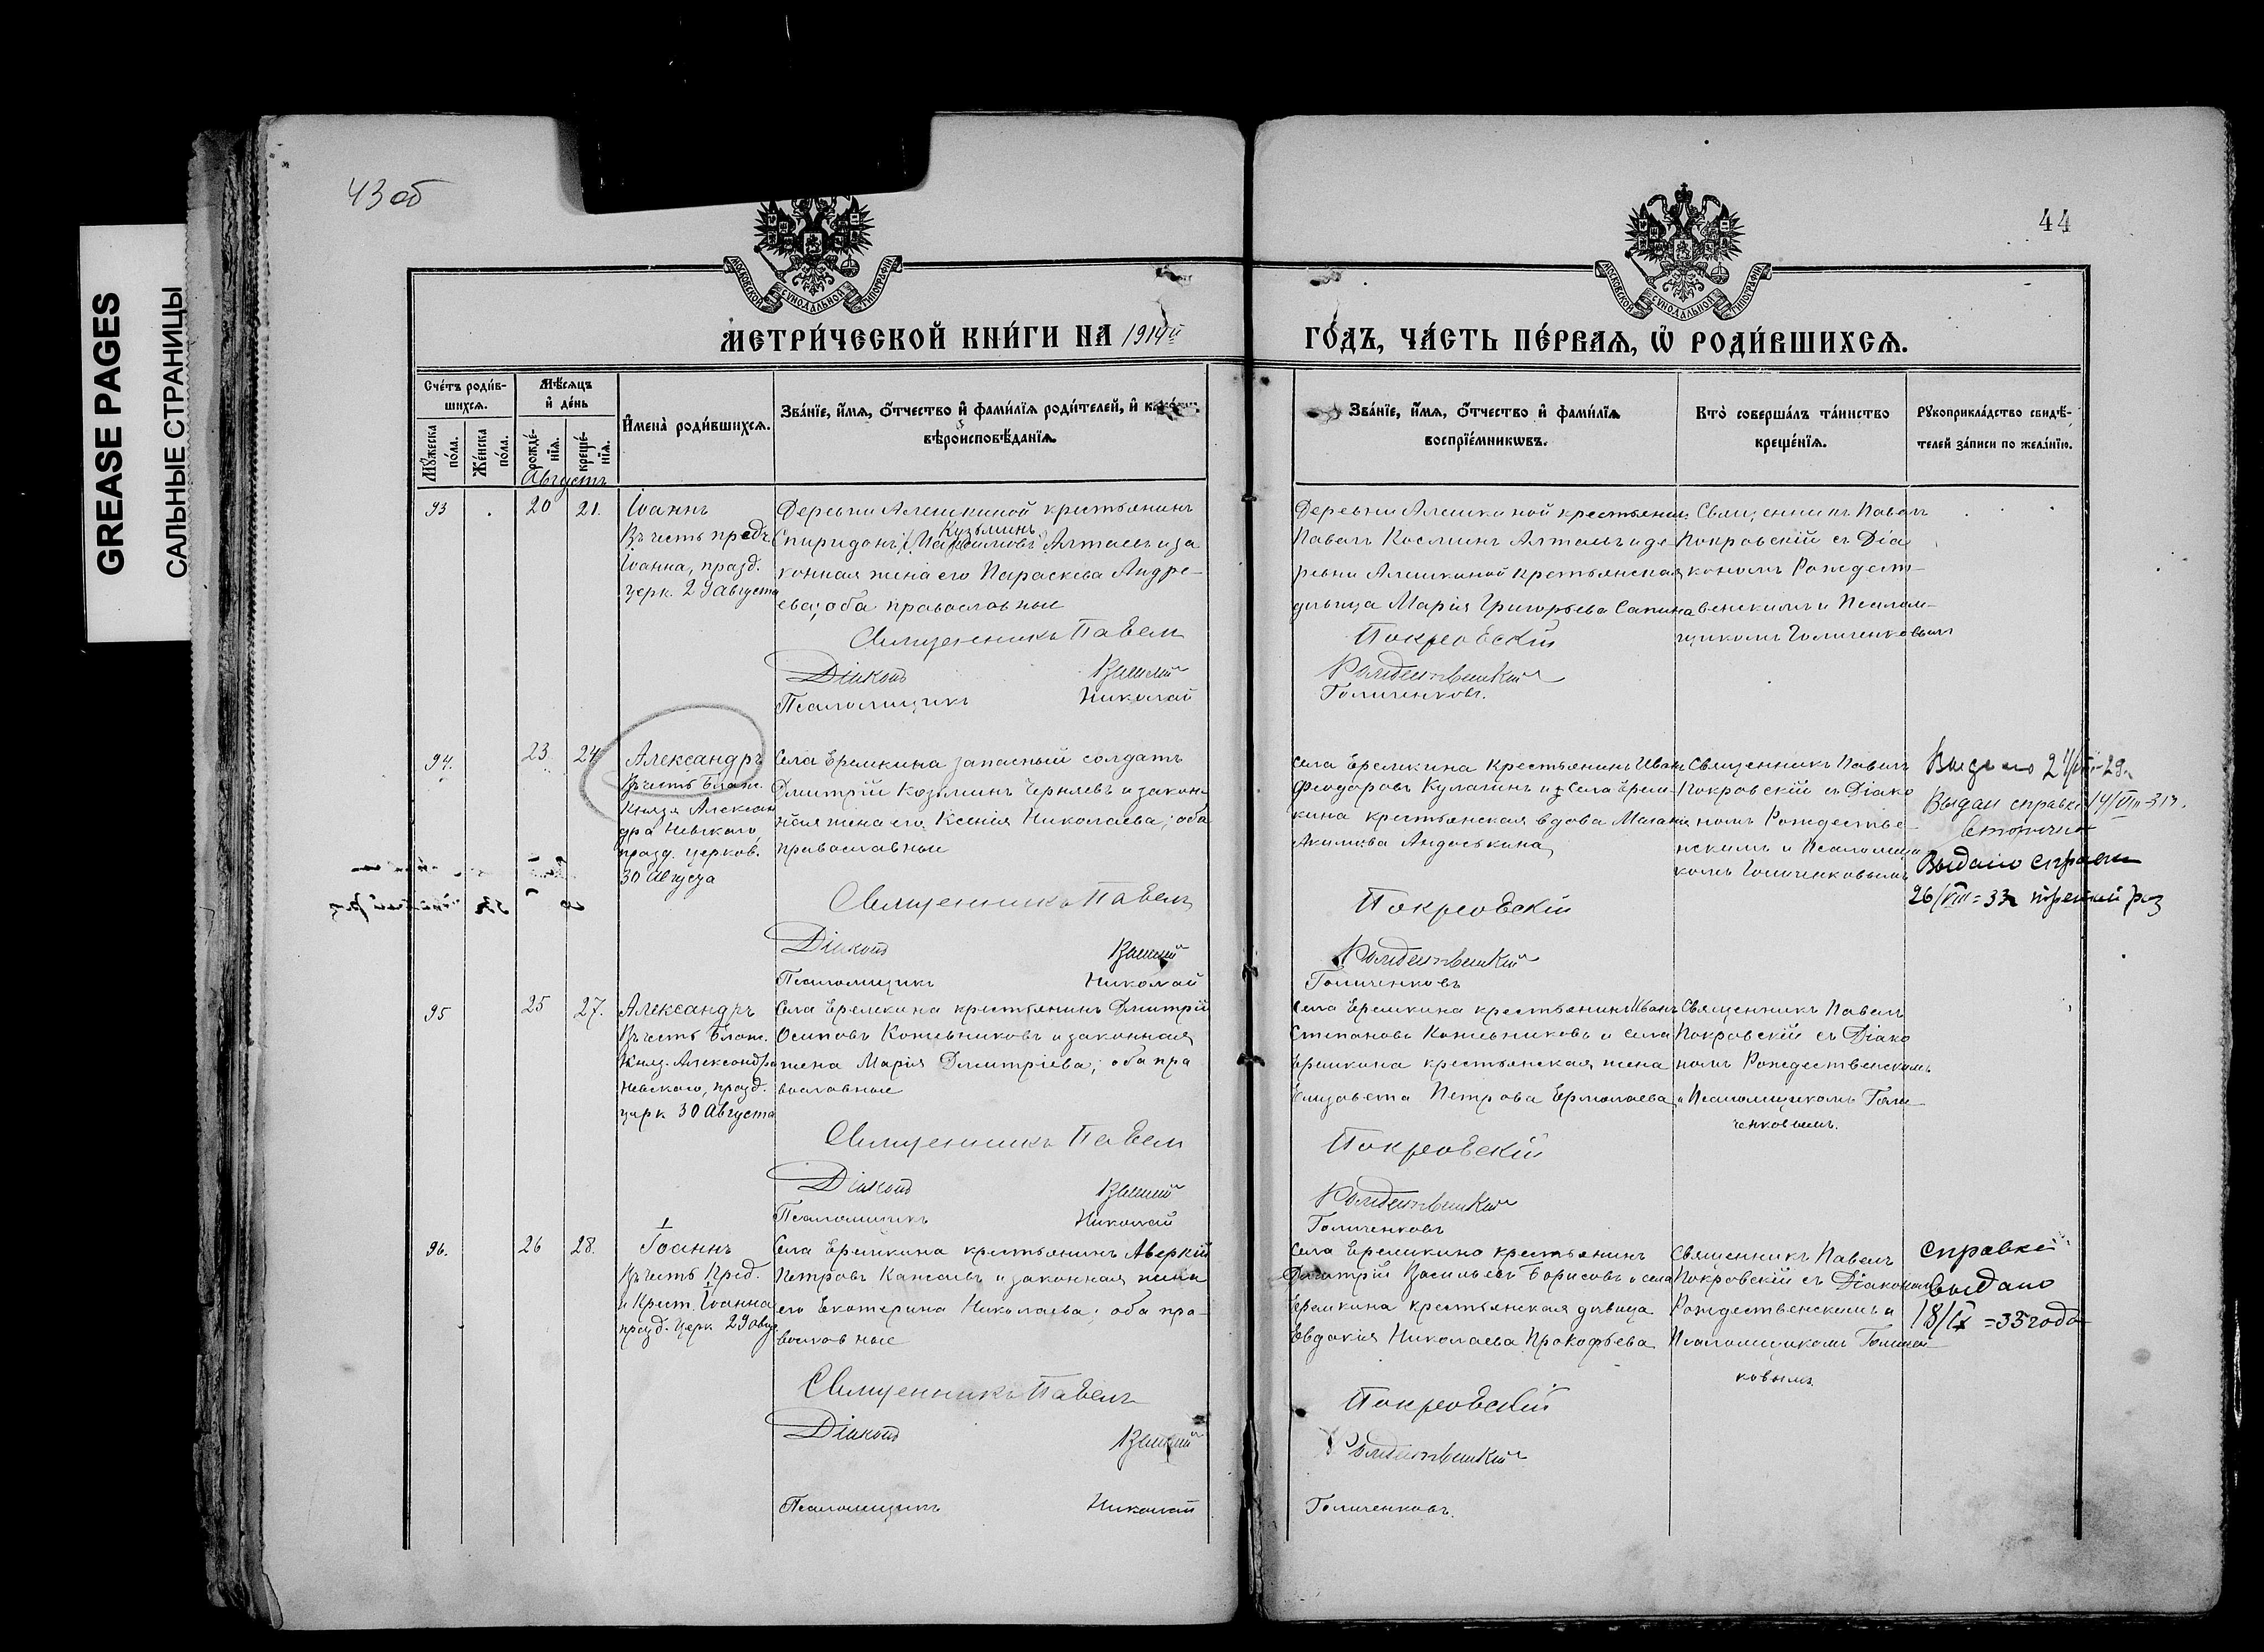 GREASE PAGES
САЛЬНЫЕ СТРАНИЦЫ
43 об
44
МОСКОВСКОЙ СУНОДАЛЬНОЙ ТИПОГРАФІИ
МОСКОВСКОЙ СУНОДАЛЬНОЙ ТИПОГРАФІИ
МЕТРИ́ЧЕСКОЙ КНИ́ГИ НА 1914й
ГО́ДЪ, ЧА́СТЬ ПЕ́РВАЯ, Ѡ РОДИ́ВШИХСЯ.
Сче́тъ роди́в-
шихся.
Мѣ́сяцъ
и де́нь
Му́жеска
по́ла.
Же́нска
по́ла.
рожде́-
нія.
креще́-
нія.
Имена̀ роди́вшихся.
Зва́ніе, и́мя, о́тчество и фами́лія роди́телей, и
вѣроисповѣ́данія.
Зва́ніе, и́мя, о́тчество и фами́лія
воспріе́мниковъ.
Кто̀ соверша́лъ та́инство
креще́нія.
Рукоприкла́дство свидѣ́-
телей за́писи по жела́нію.
Августъ
93 20 21.
Іоаннъ
Въ честь пред.
Іоанна, празд.
церк. 29 августа
Деревни Алешкиной крестьянинъ
Кузьминъ
Спиридонъ Алтаевъ и за
конная жена его Параскева Андре-
ева; оба православные
Священникъ Павелъ
Діаконъ Василій
Псаломщикъ Николай
Деревни Алешкиной крестьянин.
Павелъ Косминъ Алтаевъ и де
ревни Алешкиной крестьянская
дѣвица Марія Григорьева Сапина
Покровскій
Рождественскій
Голиченковъ.
Священникъ Павелъ
Покровскій съ Діа
кономъ Рождест-
венскимъ и Псалом-
щикомъ Голиченковымъ
94. 23 24
Александръ
Въ честь Благ.
Князя Алексан
дра Невского,
празд. церков.
30 Августа
Села Еремкина запасный солдатъ
Дмитрій Козьминъ Черняевъ и закон
ная жена его Ксенія Николаева; оба
православные
Священникъ Павелъ
Діаконъ Василій
Псаломщикъ Николай
Села Еремкина крестьянинъ Иванъ
Феодоровъ Кулагинъ и Села Ерем-
кина крестьянская вдова
Акилина Андоськина
Покровскій
Рождественскій
Голиченковъ
Священникъ Павелъ
Покровскій съ Діако
номъ Рождестве-
нскимъ и Псаломщи
комъ Голиченковымъ
Выдано 21/VIII-29г.
Выдан справка 14/VIII-31г.
Выдано справки
26/VIII=33г третий раз
95 25 27.
Александръ
Въ честь Благ.
Княз. Александра
Невского, празд.
церк 30 Августа
Села Еремкина крестьянинъ Дмитрій
Осиповъ Кожевниковъ и законная
жена Марія Дмитріева; оба пра
вославные
Священникъ Павелъ
Діаконъ Василій
Псаломщикъ Николай
Села Еремкина крестьянинъ Иванъ
Степановъ Кожевниковъ и села
Еремкина крестьянская жена
Елизавета Петрова Ермолаева
Покровскій
Рождественскій
Голиченковъ
Священникъ Павелъ
Покровскій съ Діако
номъ Рождественскимъ
и Псаломщикомъ Голи-
ченковымъ.
96. 26 28.
Іоаннъ
Въ честь Пред.
и Крест. Іоанна
празд. церк 29 авг.
Села Еремкина крестьянинъ Аверкій
Петровъ Канаевъ и законная жена
его Екатерина Николаева; оба пра-
вославные
Священникъ Павелъ
Діаконъ Василій
Псаломщикъ Николай
Села Еремкина крестьянинъ
Дмитрій Васильевъ Борисовъ и села
Еремкина крестьянская дѣвица
Евдокія Николаева Прокофьева
Покровскій
Рождественскій
Голиченковъ.
Священникъ Павелъ
Покровскій съ Діакономъ
Рождественскимъ и
Псаломщикомъ Голичен
ковымъ.
Справка
выдано
18/IX =35 года